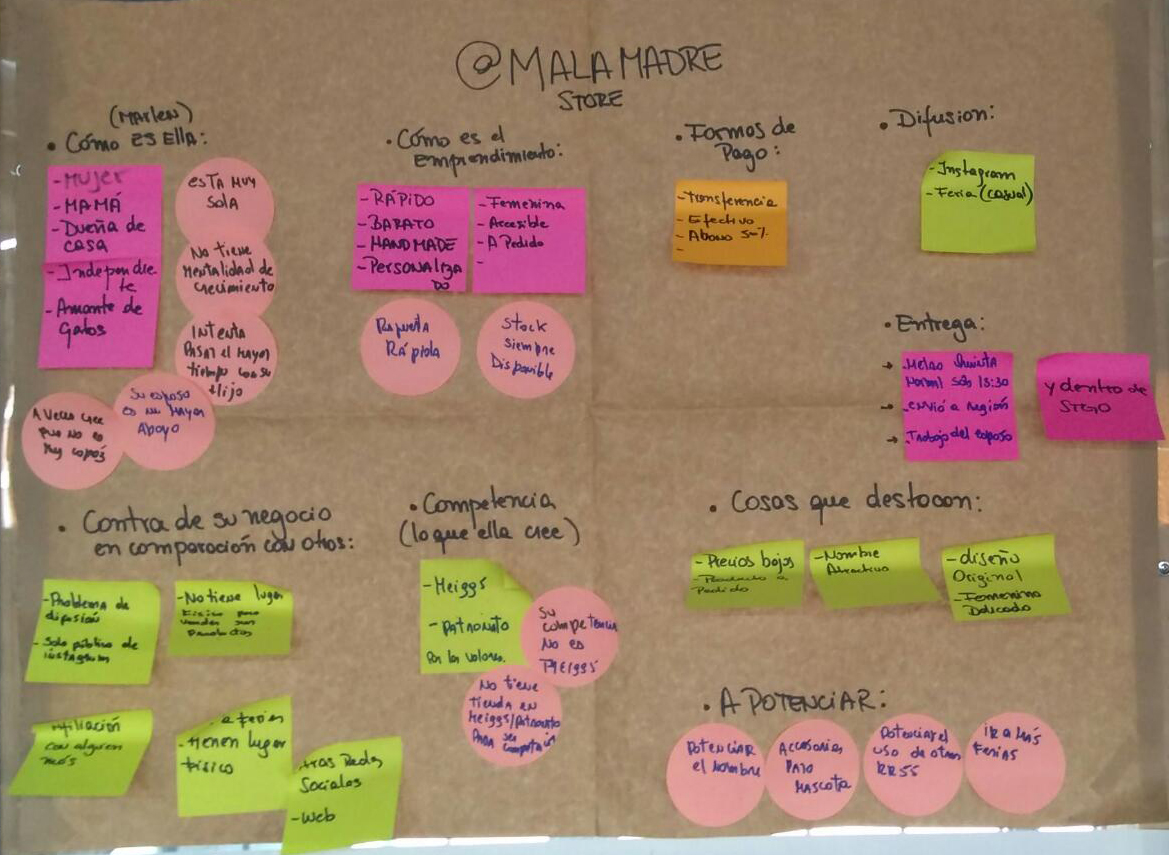 @MALAMADRE
STORE
(Marlen)
• Cómo es Ella:
- Mujer
- MAMÁ
- Dueña de
casa
- Independie
te
- Amante de
Gatos
ESTA MUY
SOLA
No tiene
Mentalidad de
crecimiento
INTENTA
PASAR el Mayor
tiempo con su
Hijo
Su esposo
es su Mayor
Apoyo
A veces cree
que no es
muy capaz
• Cómo es el
emprendimiento:
- RÁPIDO
- BARATO
- HANDMADE
- Personaliza
do
- Femenina
- Accesible
- A Pedido
-
Rápida
Stock
siempre
Disponible
• Formas de
Pago:
- Transferencia
- Efectivo
- Abono 50%
-
• Difusion:
- Instagram
- Feria (casual)
• Entrega:
→ - Metro Quinta
Normal Sáb 15:30
→ - envió a región
→ - Trabajo del esposo
y dentro de
STGO
• Contra de su negocio
en comparación con otros:
- Problema de
difusión
- Solo público de
instagram
- No tiene lugar
físico para
vender sus
productos
Afiliación
con alguien
más
a ferias
- tienen lugar
físico
otras Redes
Sociales
- Web
• Competencia
(lo que ella cree)
- Meiggs
- Patronato
Por los valores.
Su
competencia
No es
MEIGGS
No tiene
tienda en
Meiggs/Patronato
para ser
competencia
• Cosas que destacan:
- Precios bajos
- Producto a
Pedido
- Nombre
Atractivo
- diseño
Original
- Femenino
Delicado
• A POTENCIAR:
POTENCIAR
el Nombre
Accesorios
para
Mascota
Potenciar el
uso de otras
RRSS
IR A MÁS
Ferias